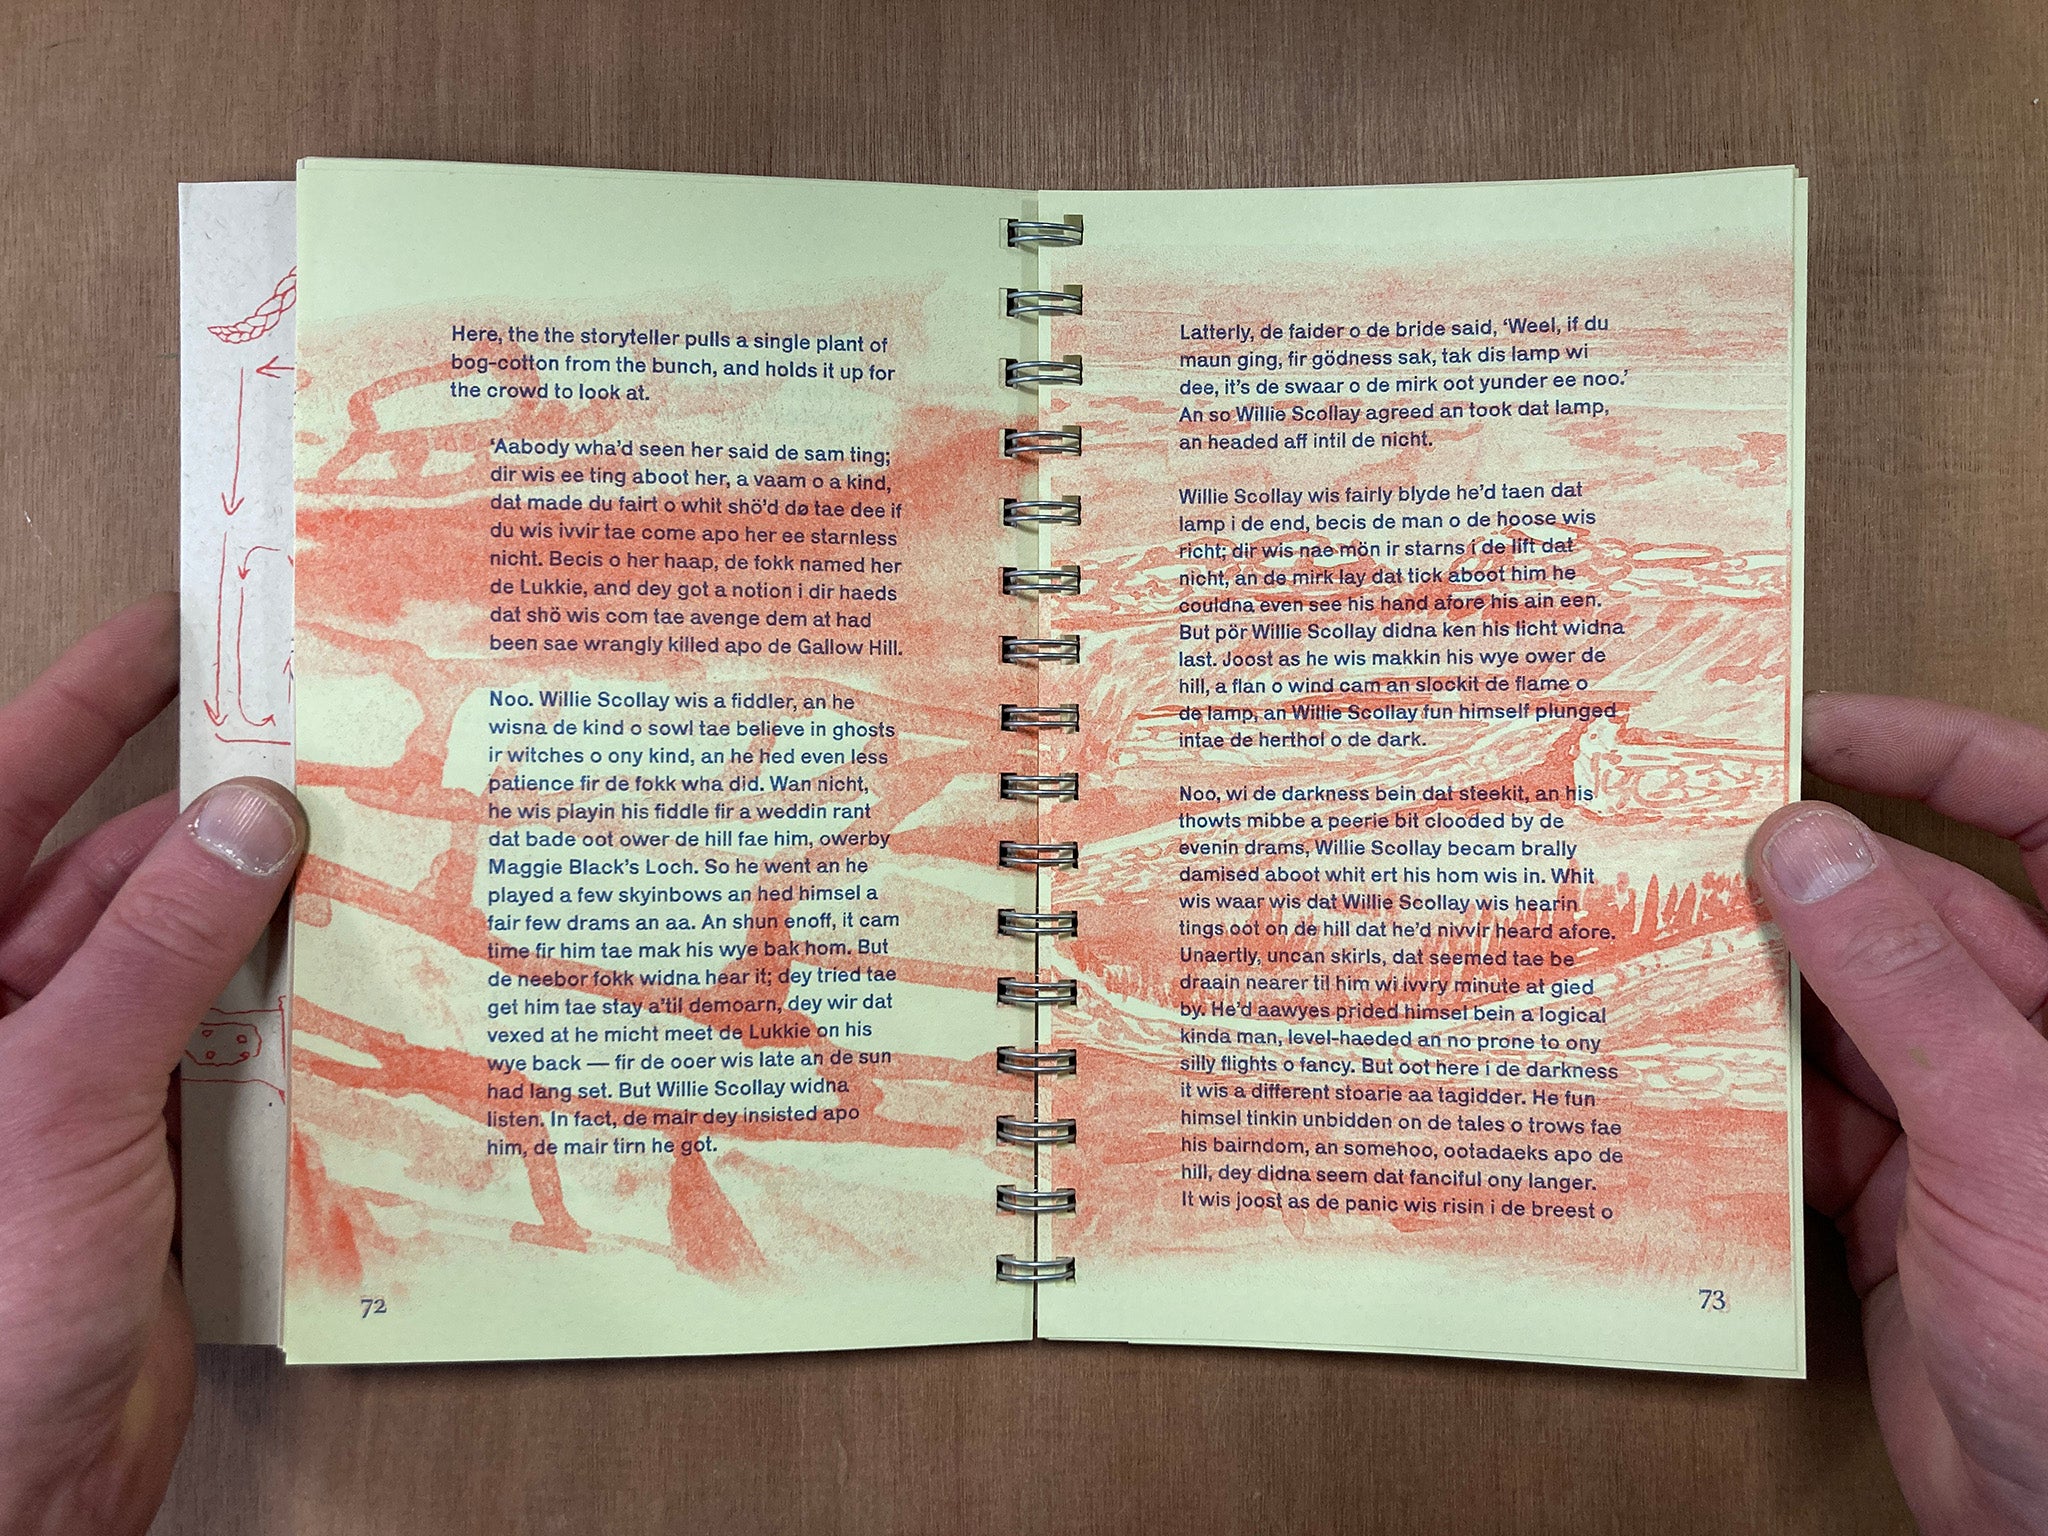 Here, the the storyteller pulls a single plant of
bog-cotton from the bunch, and holds it up for
the crowd to look at.
‘Aabody wha’d seen her said de sam ting;
dir wis ee ting aboot her, a vaam o a kind,
dat made du fairt o whit shö’d dø tae dee if
du wis ivvir tae come apo her ee starnless
nicht. Becis o her haap, de fokk named her
de Lukkie, and dey got a notion i dir haeds
dat shö wis com tae avenge dem at had
been sae wrangly killed apo de Gallow Hill.
Noo. Willie Scollay wis a fiddler, an he
wisna de kind o sowl tae believe in ghosts
ir witches o ony kind, an he hed even less
patience fir de fokk wha did. Wan nicht,
he wis playin his fiddle fir a weddin rant
dat bade oot ower de hill fae him, owerby
Maggie Black’s Loch. So he went an he
played a few skyinbows an hed himsel a
fair few drams an aa. An shun enoff, it cam
time fir him tae mak his wye bak hom. But
de neebor fokk widna hear it; dey tried tae
get him tae stay a’til demoarn, dey wir dat
vexed at he micht meet de Lukkie on his
wye back — fir de ooer wis late an de sun
had lang set. But Willie Scollay widna
listen. In fact, de mair dey insisted apo
him, de mair tirn he got.
72
Latterly, de faider o de bride said, ‘Weel, if du
maun ging, fir gödness sak, tak dis lamp wi
dee, it’s de swaar o de mirk oot yunder ee noo.’
An so Willie Scollay agreed an took dat lamp,
an headed aff intil de nicht.
Willie Scollay wis fairly blyde he’d taen dat
lamp i de end, becis de man o de hoose wis
richt; dir wis nae mön ir starns i de lift dat
nicht, an de mirk lay dat tick aboot him he
couldna even see his hand afore his ain een.
But pör Willie Scollay didna ken his licht widna
last. Joost as he wis makkin his wye ower de
hill, a flan o wind cam an slockit de flame o
de lamp, an Willie Scollay fun himself plunged
intae de herthol o de dark.
Noo, wi de darkness bein dat steekit, an his
thowts mibbe a peerie bit clooded by de
evenin drams, Willie Scollay becam brally
damised aboot whit ert his hom wis in. Whit
wis waar wis dat Willie Scollay wis hearin
tings oot on de hill dat he’d nivvir heard afore.
Unaertly, uncan skirls, dat seemed tae be
draain nearer til him wi ivvry minute at gied
by. He’d aawyes prided himsel bein a logical
kinda man, level-haeded an no prone to ony
silly flights o fancy. But oot here i de darkness
it wis a different stoarie aa tagidder. He fun
himsel tinkin unbidden on de tales o trows fae
his bairndom, an somehoo, ootadaeks apo de
hill, dey didna seem dat fanciful ony langer.
It wis joost as de panic wis risin i de breest o
73